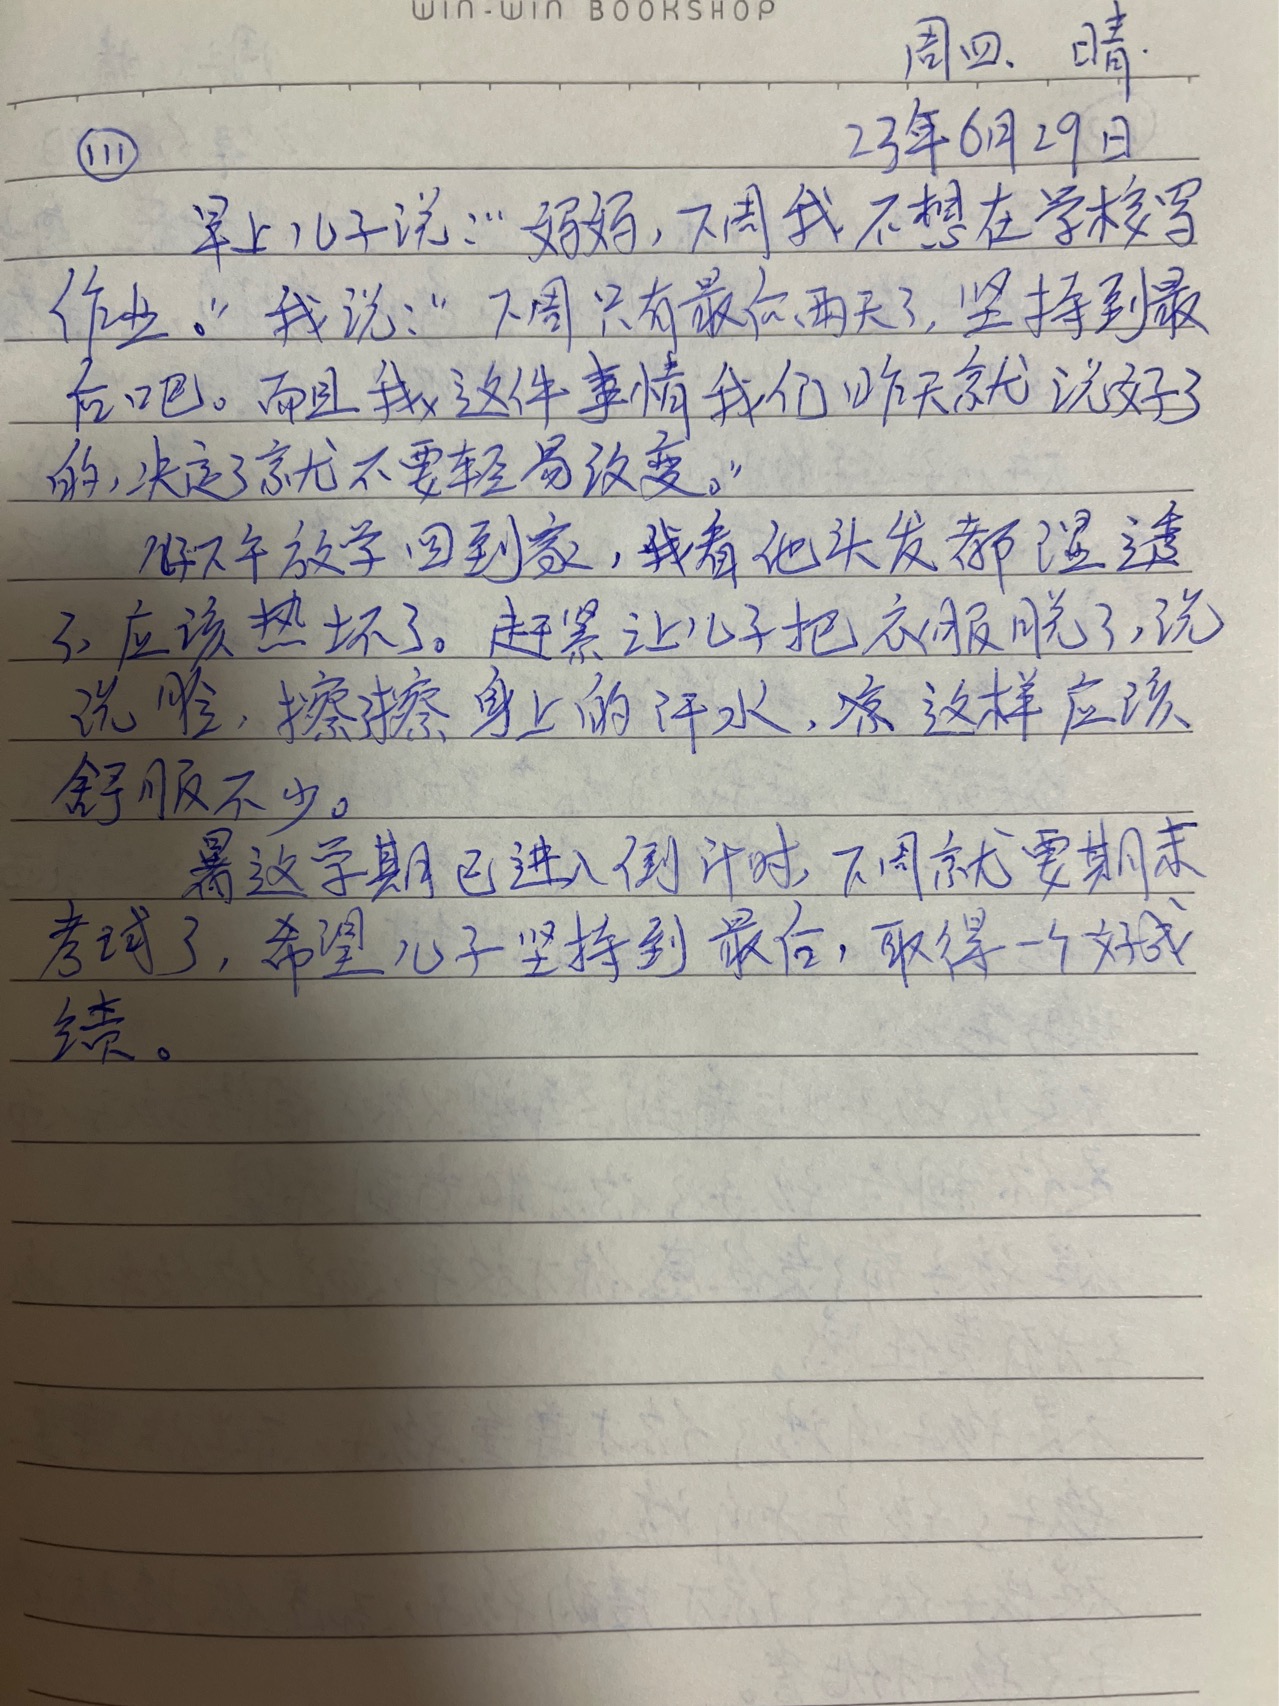 WIN-WIN BOOKSHOP
周四、晴.
111 23年6月29日
早上儿子说:"妈妈,下周我不想在学校写
作业。"我说:"下周只有最后两天了,坚持到最
后吧。而且我这件事情我们昨天就说好了
的,决定了就不要轻易改变。"
下午放学回到家,我看他头发都湿透
了,应该热坏了。赶紧让儿子把衣服脱了,洗
洗脸,擦擦身上的汗水,凉这样应该
舒服不少。
暑这学期已进入倒计时,下周就要期末
考试了,希望儿子坚持到最后,取得一个好成
绩。